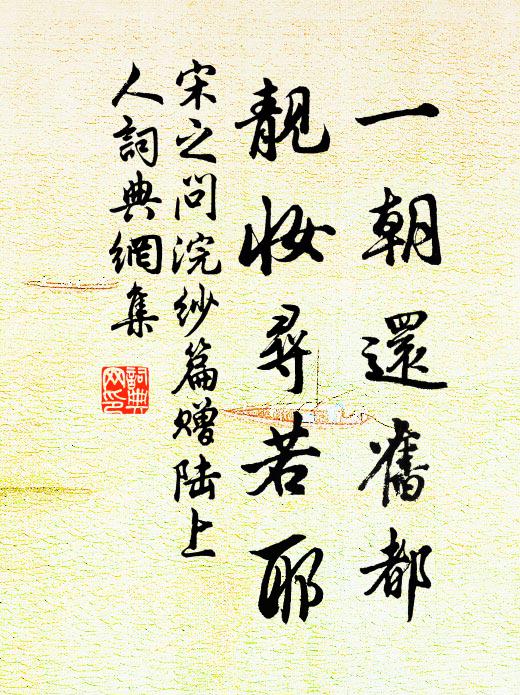 一朝還舊都
靚妝尋若耶
宋之问浣紗篇赠陆上
人詞典網集
詞典
网印